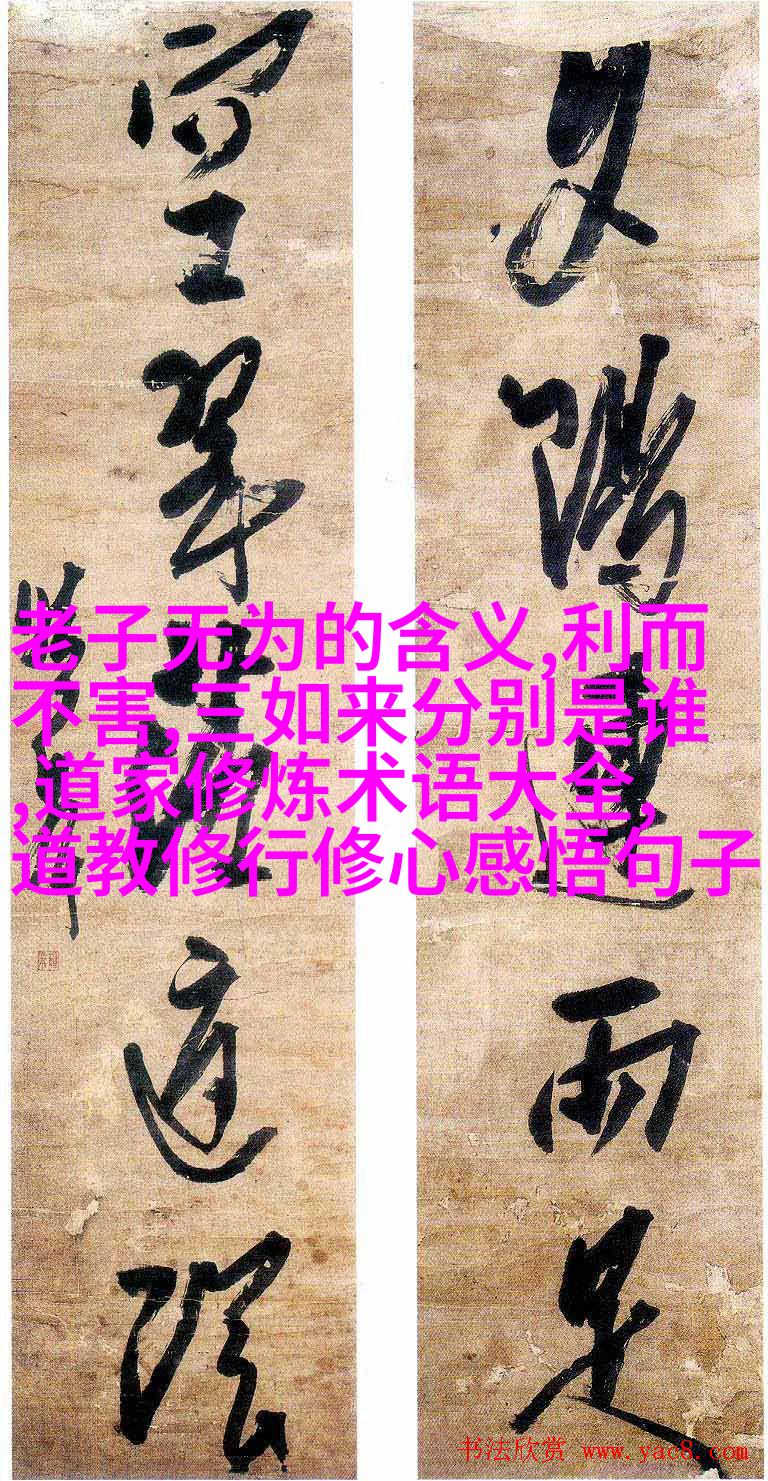 夕陽連雨足
空翠落庭陰
老子无为的含义,利而
不害,三如来分别是谁
,道家修炼术语大全,
道教修行修心感悟句子
书法欣赏 www.yac8.com